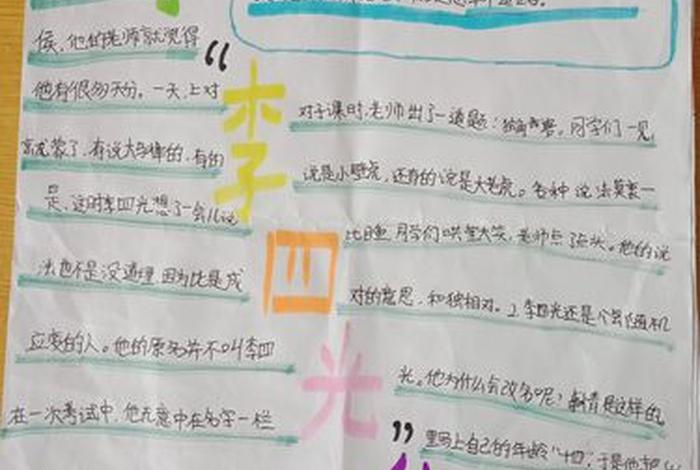 侯，他的老师就觉得
他有很多天分。一天，上对
对子课时，老师出了一道题：独角兽。同学们一见
就蒙了，有说大的，有的
说是小壁虎，还有的说是大老虎。各种说法莫衷一
是，这时李四光想了一会儿说
比目鱼 同学们哄堂大笑，老师点了点头。他的说
法也不是没道理 因为比是成
对的意思，和独相对。2.李四光还是个会随机
应变的人。他的原名并不叫李四
光。他为什么会改名呢？事情是这样的，
在一次考试中，他无意中在名字一栏
里写上自己的年龄“十四”，于是他把
“李四光”